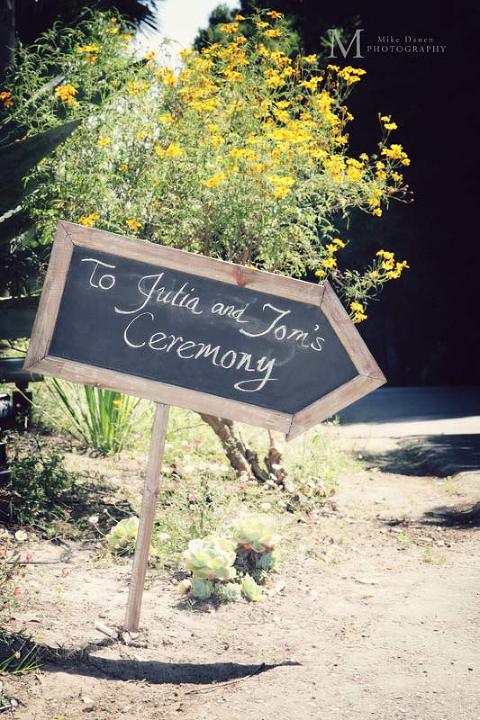 M Mike Danen
PHOTOGRAPHY
To Julia and Tom's
Ceremony